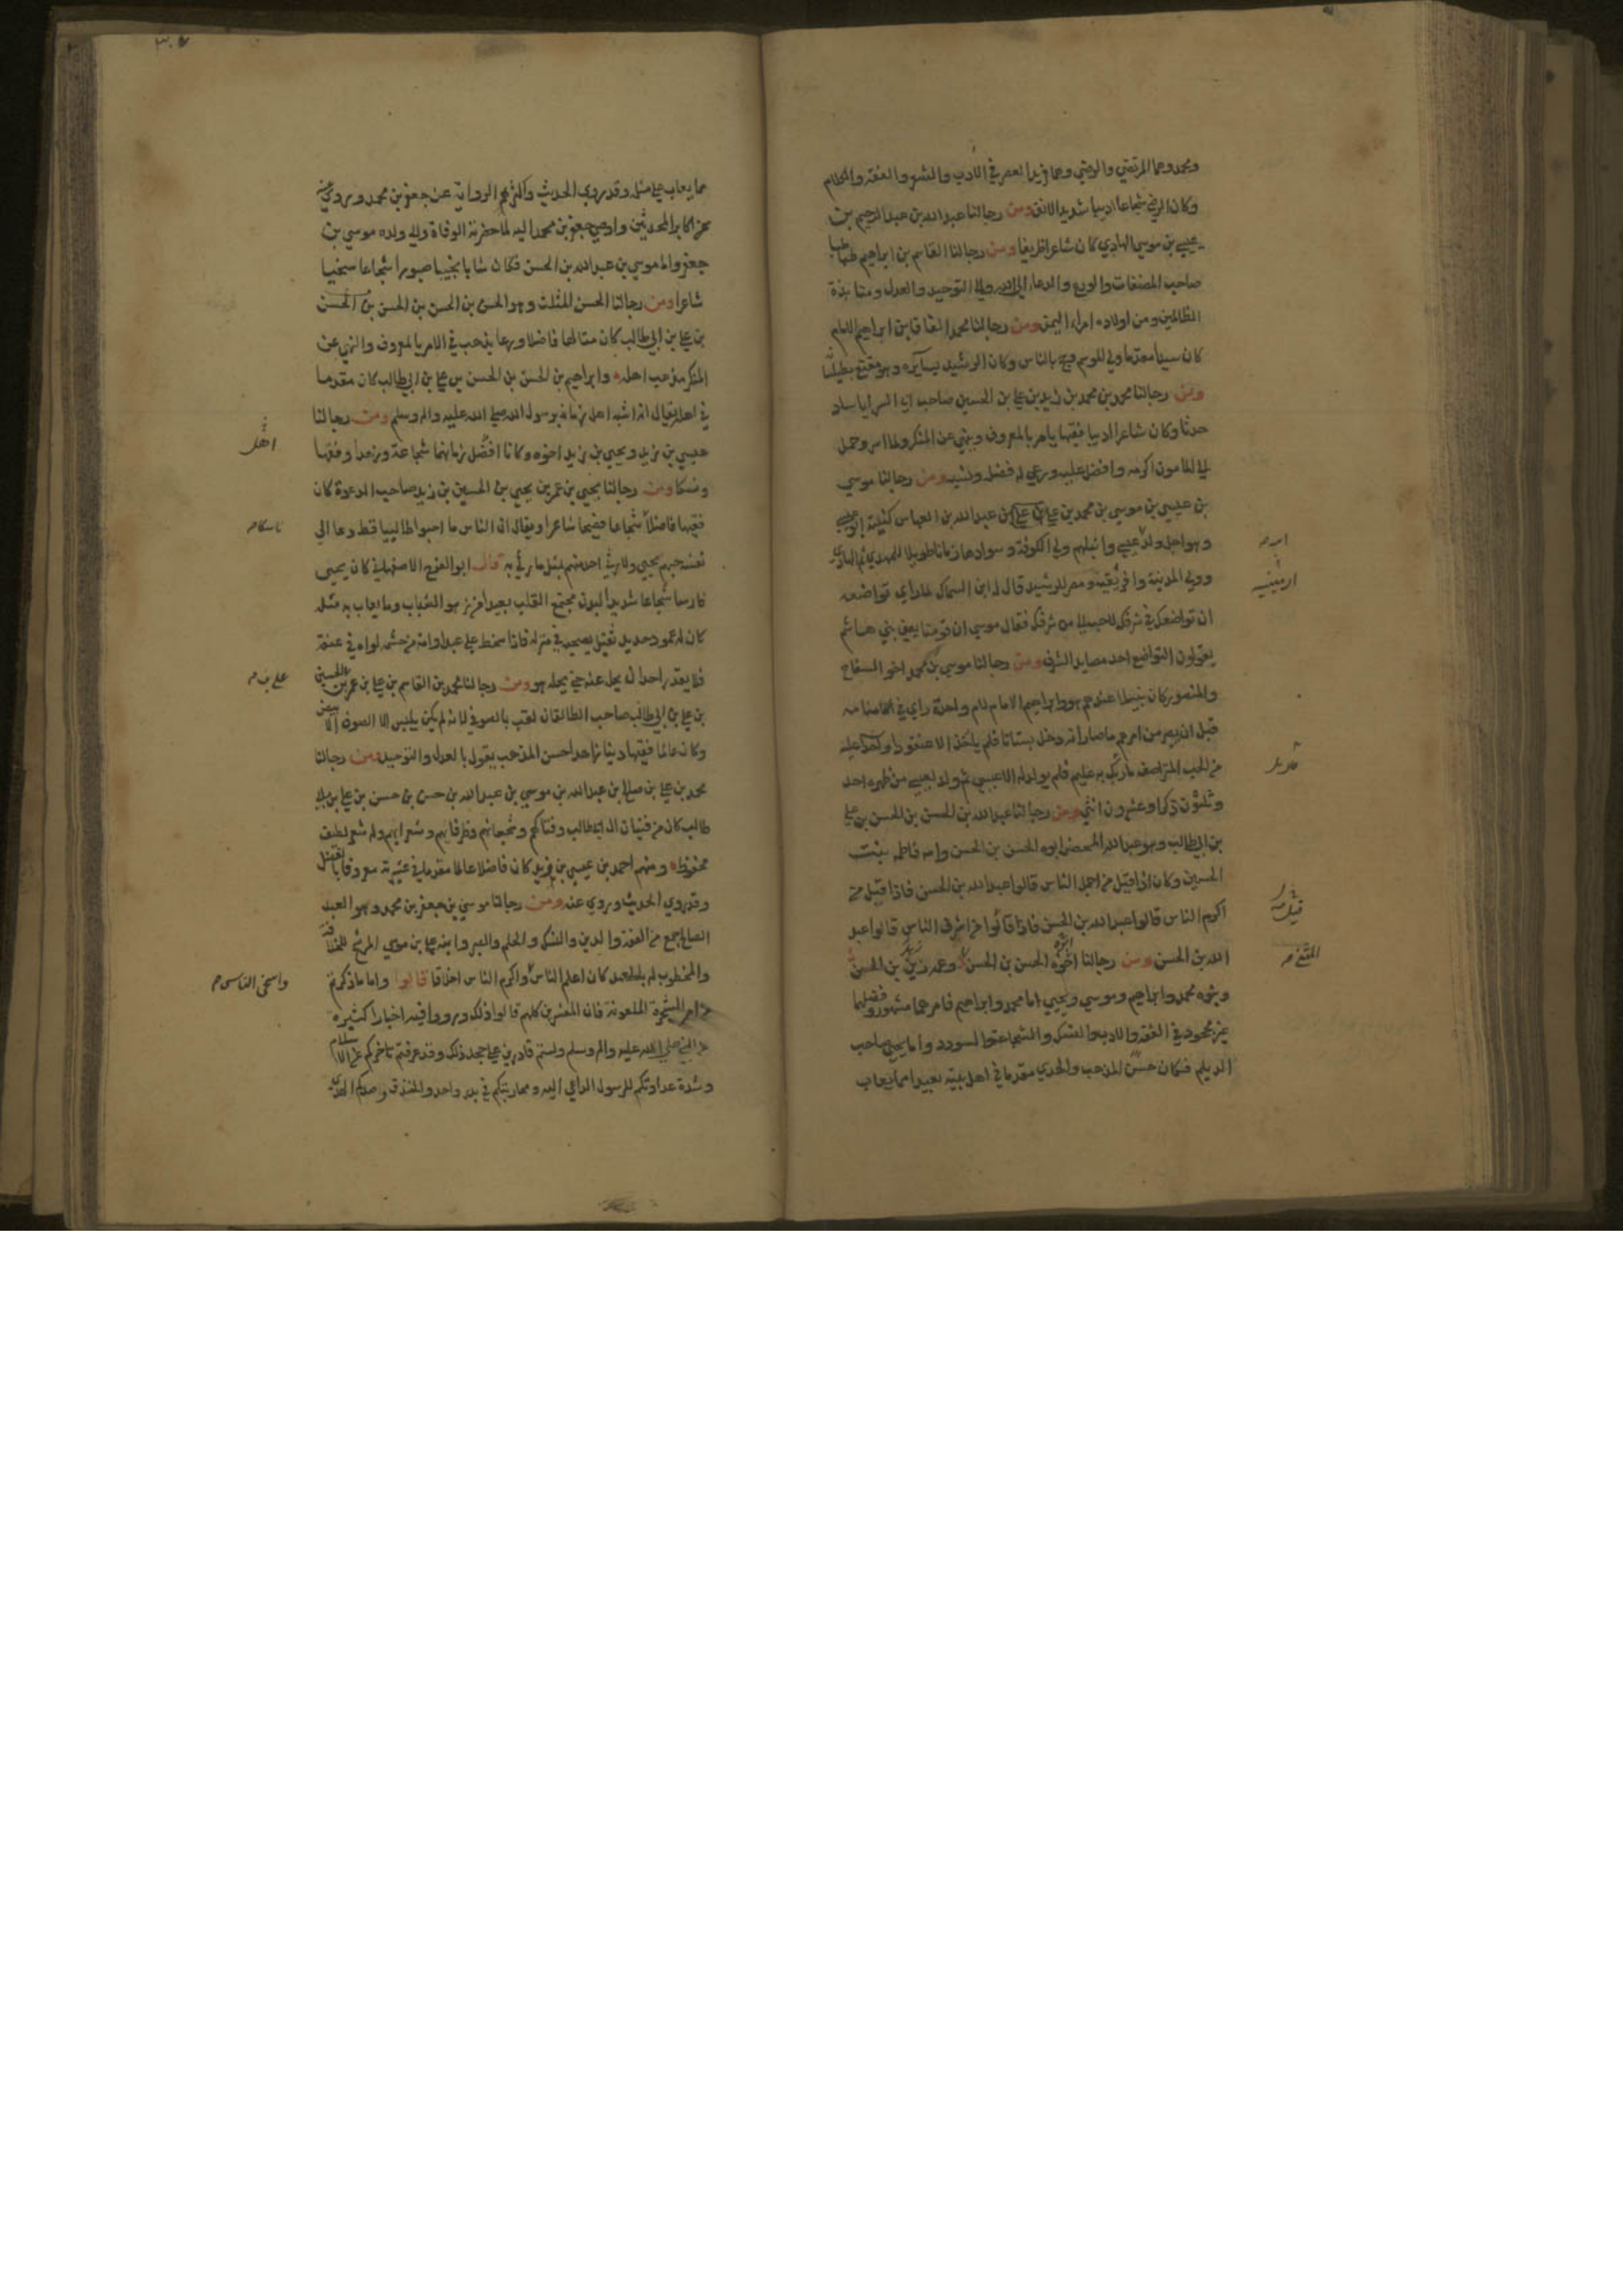 ومحمد وهما المرتضي والرضي وهما فريدا العصر في الادب والشعر والفقه والكلام
وكان الرضي شجاعا اديبا شديد الانف ومن رجالنا عبد الله بن عبد الرحيم بن
عيسي بن موسي الهادي كان شاعرا ظريفا ومن رجالنا القاسم بن ابراهيم طباطبا
صاحب المصنفات والورع والدعاء الي الله والي التوحيد والعدل ومنابذة
الظالمين ومن اولاده امراء اليمن ومن رجالنا محمد الفافا بن ابراهيم الامام
كان سيدا مقدما ولي الموسم وحج بالناس وكان الرشيد يسايره وهو مقنع بطيلسانه
ومن رجالنا محمد بن محمد بن زيد بن علي بن الحسين صاحب ابي السرايا ساد
حدثا وكان شاعرا اديبا فقيها يامر بالمعروف وينهي عن المنكر ولما اسر وحمل
الي المامون اكرمه وافضل عليه ورعي له فضله ونسبه ومن رجالنا موسي
بن عيسي بن موسي بن محمد بن علي بن عبد الله بن العباس كنيته ابو عيسي
وهو اجل ولد عيسي وانبلهم ولي الكوفة وسوادها زمانا طويلا للمهدي ثم الهادي
وولي المدينة وافريقية ومصر للرشيد قال له ابن السماك لما راي تواضعه
ان تواضعك في شرفك لاحب الي من شرفك فقال موسي ان قومنا يعني بني هاشم
يقولون التواضع احد مصايد الشرف ومن رجالنا موسي بن محمد اخو السفاح
والمنصور كان نبيلا عندهم هو وابراهيم الامام لام واحدة راي في المنام
قبل ان يصير من امرهم ما صار انه دخل بستانا فلم ياخذ الا عنقودا واحدا عليه
من الحب المتراصف ما ربك به عليم فلم يولد له الا عيسي ثم ولد لعيسي من ظهره احد
وثلثون ذكرا وعشرون انثي ومن رجالنا عبد الله بن الحسن بن الحسن بن علي
بن ابي طالب وهو عبد الله المحض ابوه الحسن بن الحسن وامه فاطمة بنت
الحسين وكان اذا قيل من اجمل الناس قالوا عبد الله بن الحسن فاذا قيل من
اكرم الناس قالوا عبد الله بن الحسن فاذا قالوا من اشرف الناس قالوا عبد
الله بن الحسن ومن رجالنا اخوه الحسن بن الحسن وعمه زيد بن الحسن
وبنوه محمد وابراهيم وموسي ويحيي اما محمد وابراهيم فامرهما مشهور وفضلهما
غير مجحود في الفقه والادب والنسك والشجاعة والسودد واما يحيي صاحب
الديلم فكان حسن المذهب والهدي مقدما في اهل بيته بعيدا مما يعاب
ابره
ارمينيه
قيل
مما يعاب علي مثله وقد روي الحديث واكثر الرواية عن جعفر بن محمد وروي عن
اكابر المحدثين واوصي جعفر بن محمد اليه لما حضرته الوفاة والي ولده موسي بن
جعفر واما موسي بن عبد الله بن الحسن فكان شابا نجيبا صبورا شجاعا سخيا
شاعرا ومن رجالنا الحسن المثلث وهو الحسن بن الحسن بن الحسن بن الحسن
بن علي بن ابي طالب كان متالها فاضلا ورعا يذهب في الامر بالمعروف والنهي عن
المنكر مذهب اهله وابراهيم بن الحسن بن الحسن بن علي بن ابي طالب كان مقدما
في اهله يقال انه اشبه اهل زمانه برسول الله صلي الله عليه واله وسلم ومن رجالنا
عيسي بن زيد ويحيي بن زيد اخوه وكانا افضل زمانهما شجاعة وزهدا وفقها
ونسكا ومن رجالنا يحيي بن عمر بن يحيي بن الحسين بن زيد صاحب الدعوة كان
فقيها فاضلا شجاعا فصيحا شاعرا ويقال ان الناس ما احبوا طالبيا قط دعا الي
نفسه حبهم يحيي ولا رثي احد منهم بمثل ما رثي به قال ابو الفرج الاصفهاني كان يحيي
فارسا شجاعا شديد البدن مجتمع القلب بعيدا من زهو الشباب وما يعاب به مثله
كان له عمود حديد ثقيل يصحبه في منزله فاذا سخط علي عبد او امة من حشمه لواه في عنقه
فلا يقدر احد ان يحل عنه حتي يحله هو ومن رجالنا محمد بن القاسم بن علي بن عمر بن الحسين
بن علي بن ابي طالب صاحب الطالقان لقب بالصوفي لانه لم يكن يلبس الا الصوف الابيض
وكان عالما فقيها دينا زاهدا حسن المذهب يقول بالعدل والتوحيد ومن رجالنا
محمد بن علي بن صالح بن عبد الله بن موسي بن عبد الله بن حسن بن حسن بن علي بن ابي
طالب كان من فتيان ال ابي طالب وفتاكهم وشجعانهم وظرفائهم وشعرائهم وله شعر لطيف
محفوظ ومنهم احمد بن عيسي بن زيد كان فاضلا عالما مقدما في عشيرته معروفا بالفضل
وقد روي الحديث وروي عنه ومن رجالنا موسي بن جعفر بن محمد وهو العبد
الصالح جمع من الفقه والدين والنسك والحلم والصبر وابنه علي بن موسي المرشح للخلافة
والمخطوب له بالعهد كان اعلم الناس واكرم الناس اخلاقا قالوا واما ما ذكرتم
من امر الشجرة الملعونة فان المفسرين كلهم قالوا ذلك ورووا فيه اخبارا كثيرة
عن النبي صلي الله عليه واله وسلم ولستم قادرين علي جحد ذلك وقد عرفتم تاخركم عن الاسلام
وشدة عداوتكم للرسول الداعي اليه ومحاربتكم في بدر واحد والخندق وصدكم الهدي
اهل
ناسكا
علي بن
واسخي الناس